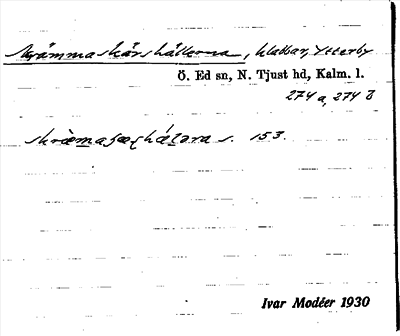 Skrämmaskärshällarna, klabbar, Ytterby
Ö. Ed sn, N. Tjust hd, Kalm. l.
274 a, 274 b
s. 153.
Ivar Modéer 1930